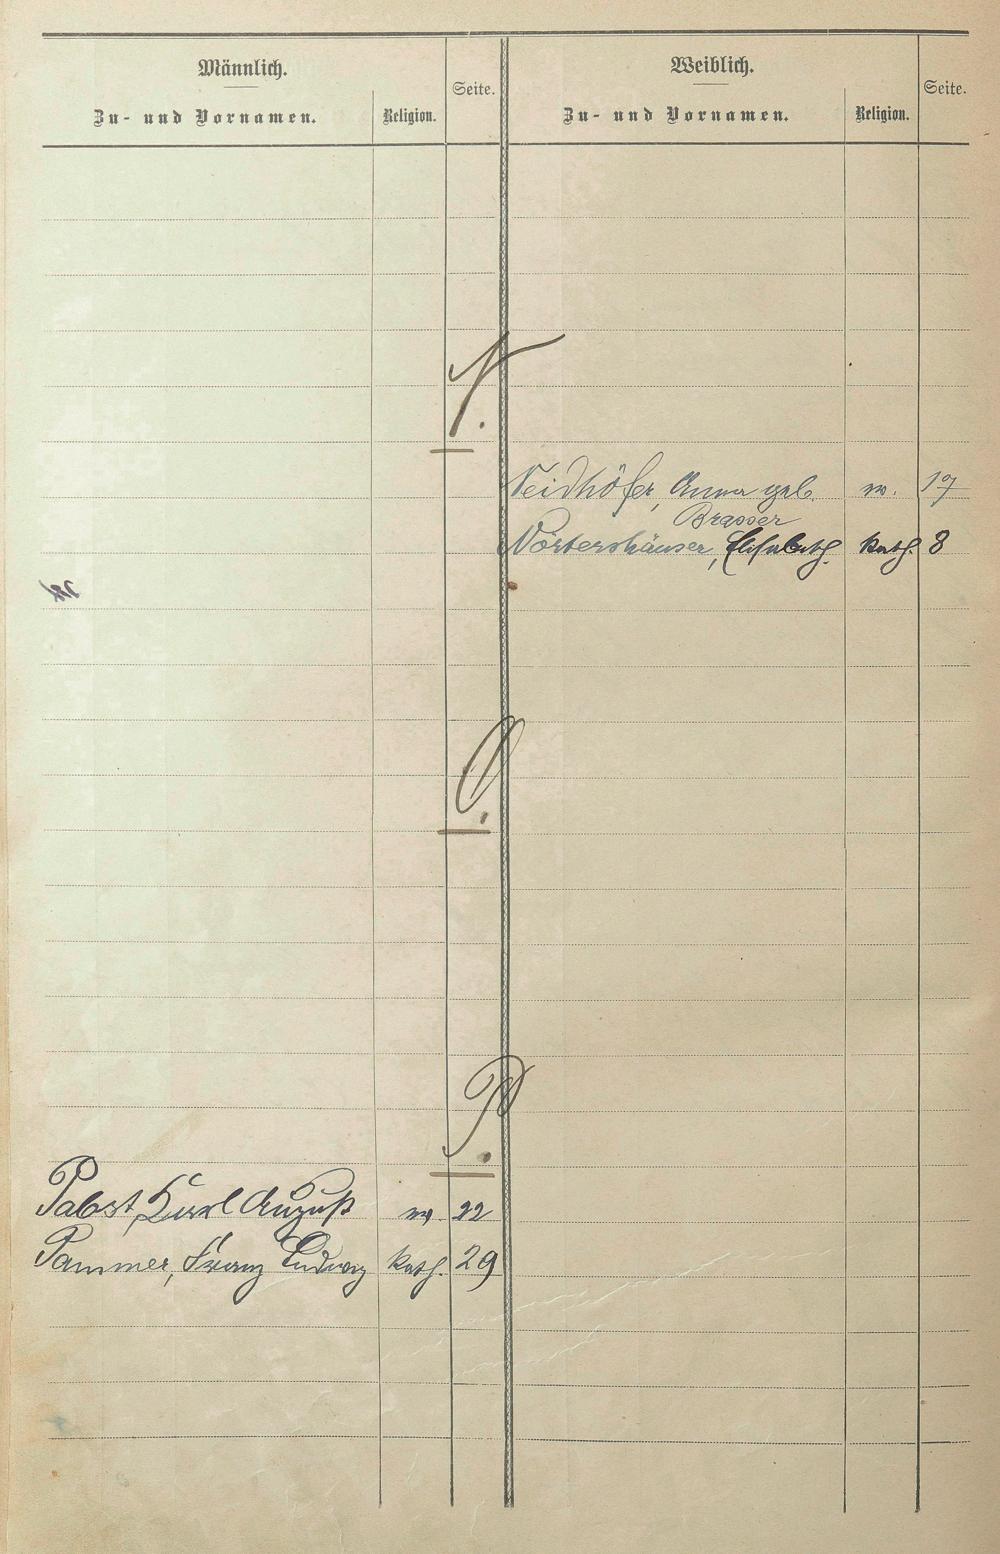 Männlich.
Zu- und Vornamen.
Religion.
Seite.
Weiblich.
Zu- und Vornamen.
Religion.
Seite.
N.
Neidhöfer, Anna geb. ev. 17
Brasser
Nörtershäuser, Elisabeth. kath. 8
O.
P.
Pabst, Karl August ev. 22
Pammer, Franz Ludwig kath. 29